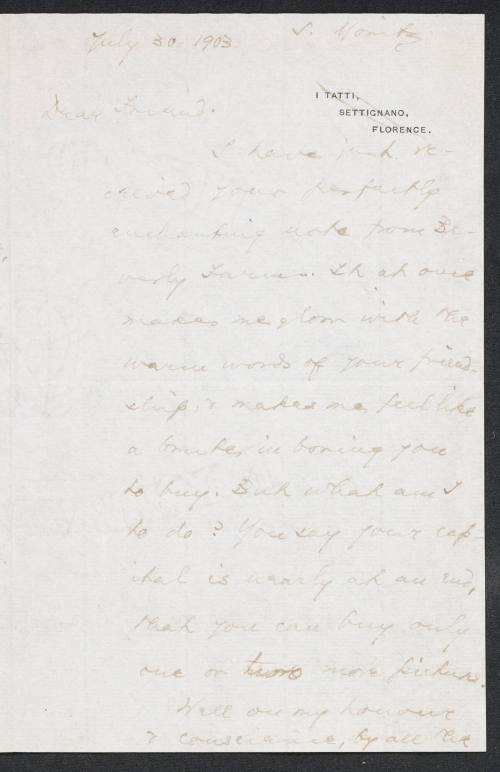 July 30, 1903. S. Moritz
I TATTI,
SETTIGNANO,
FLORENCE.
Dear Friend.
I have just re-
ceived your perfectly
enchanting note from Be-
verly Farms. It at once
makes me glow with the
warm words of your friend-
ship, & makes me feel like
a brute, in boring you
to buy. But what am I
to do? You say your cap-
ital is nearly at an end,
that you can buy only
one or two more pictures.
Well on my honour
& conscience, by all the